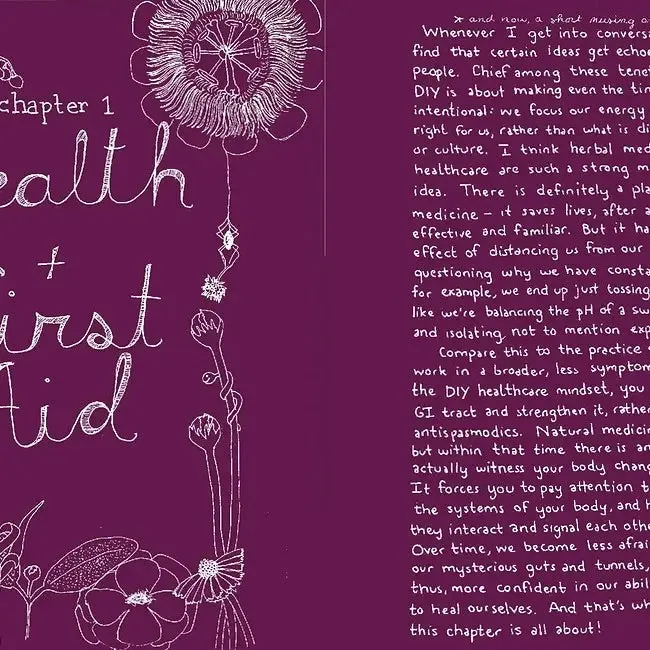 chapter 1
ealth
+
irst
Aid
* and now, a short musing o
Whenever I get into conversa
find that certain ideas get echoe
people. Chief among these tenet
DIY is about making even the tin
intentional: we focus our energy
right for us, rather than what is di
or culture. I think herbal med
healthcare are such a strong m
idea. There is definitely a pla
medicine – it saves lives, after a
effective and familiar. But it ha
effect of distancing us from our
questioning why we have consta
for example, we end up just tossing
like we're balancing the pH of a sw
and isolating, not to mention exp
Compare this to the practice
work in a broader, less symptom
the DIY healthcare mindset, you
GI tract and strengthen it, rathe
antispasmodics. Natural medicin
but within that time there is an
actually witness your body chang
It forces you to pay attention t
the systems of your body, and h
they interact and signal each othe
Over time, we become less afrai
our mysterious guts and tunnels,
thus, more confident in our abil
to heal ourselves. And that's wh
this chapter is all about!